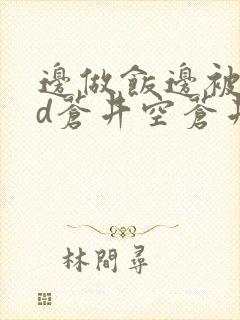 邊做飯邊被
d蒼井空蒼井
林間尋